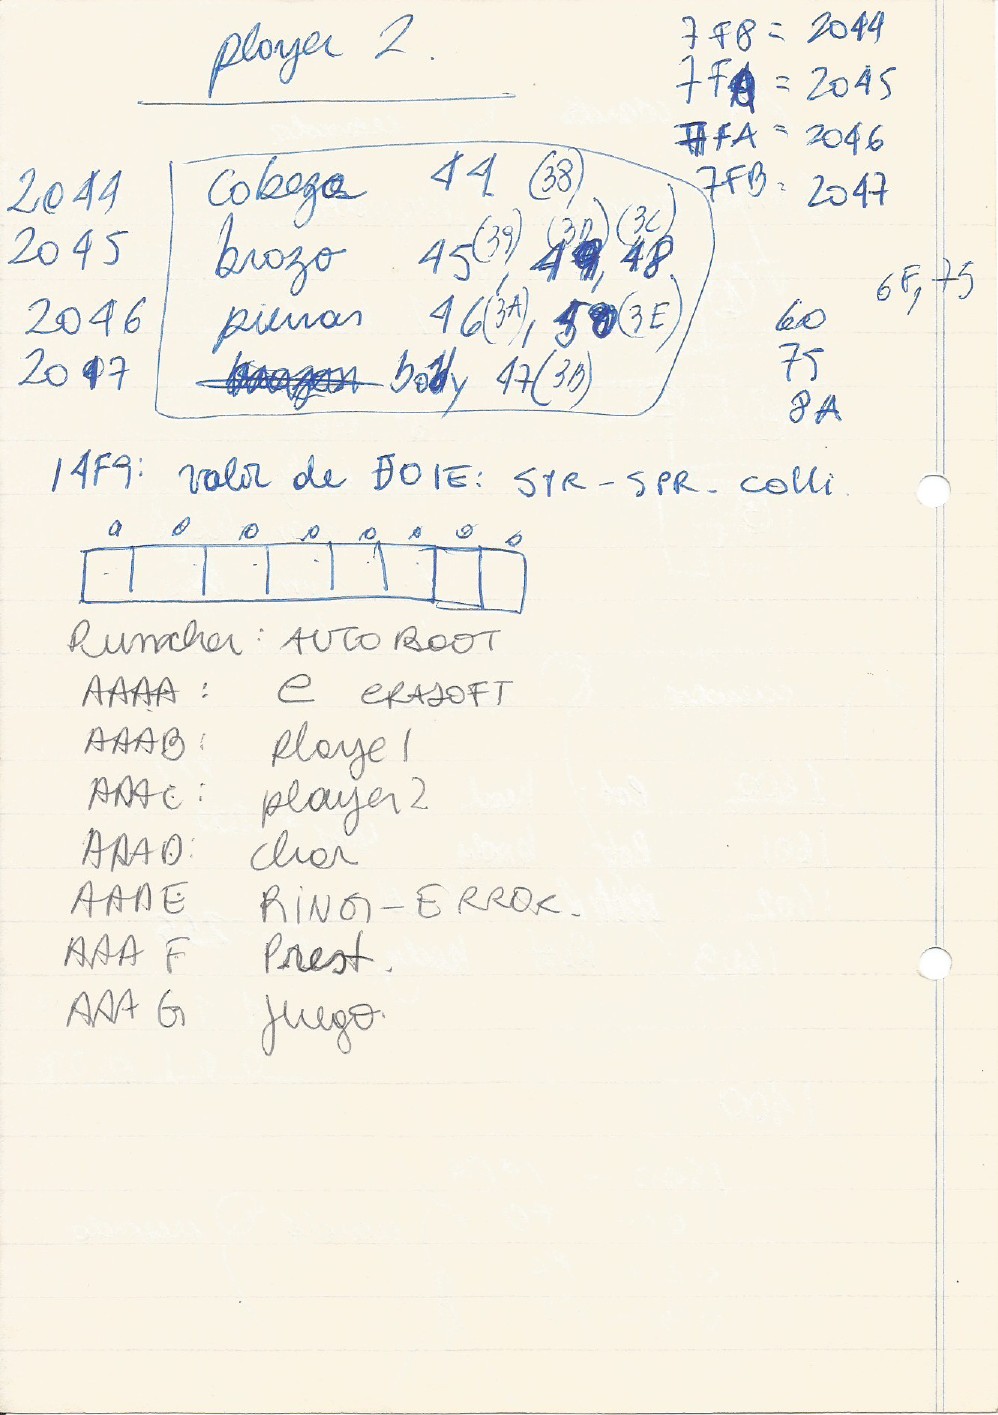 player 2.
7F8 = 2044
7F9 = 2045
7FA = 2046
7FB = 2047
2044 cabeza 44 (38)
2045 brazo 45 (39), 49 (3D), 48 (3C)
2046 piernas 46 (3A), 50 (3E)
2047 body 47 (3B)
6F, 75
60
75
8A
14F9: valor de D01E: SPR-SPR. colli.
0 0 0 0 0 0 0 0
Runscher: AUTO BOOT
AAAA: e ERASOFT
AAAB: playe1
AAAC: player2
AAAD: char
AAAE RING-ERROR.
AAAF Prest.
AAAG juego.